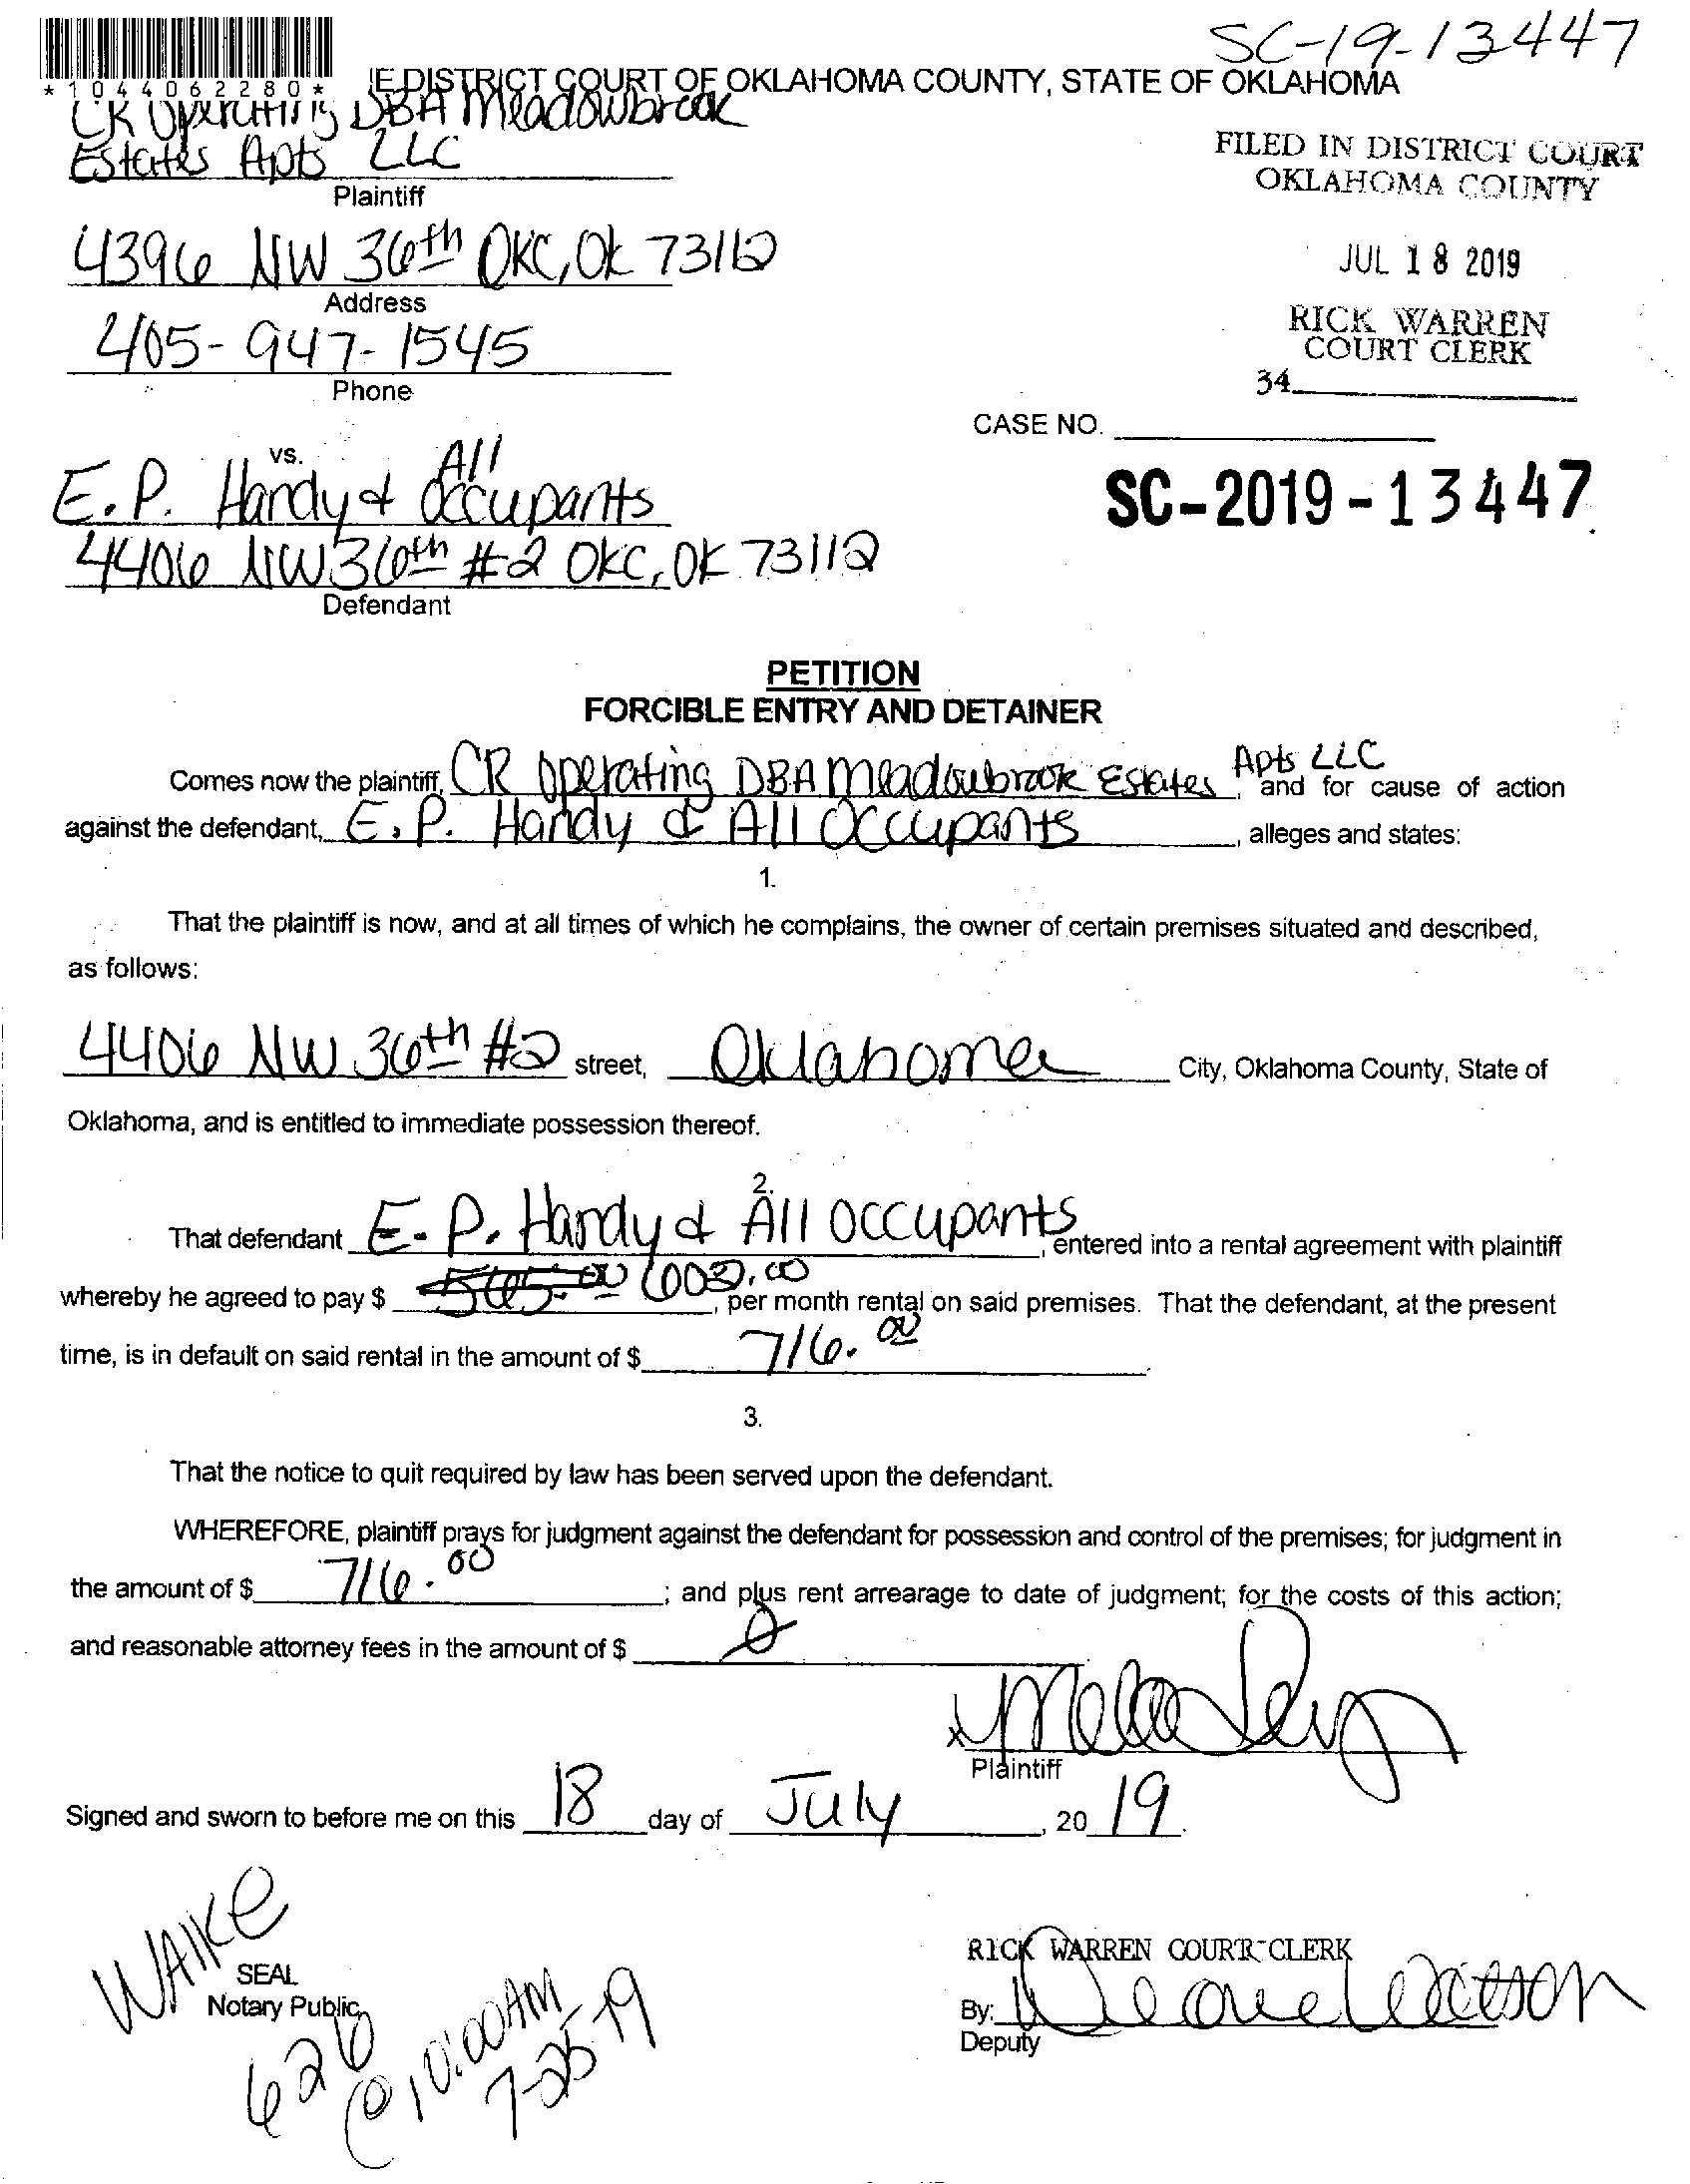 SC-19-13447
*1044062280*
IE DISTRICT COURT OF OKLAHOMA COUNTY, STATE OF OKLAHOMA
CR Operating DBA Meadowbrook
Estates Apts LLC
Plaintiff
FILED IN DISTRICT COURT
OKLAHOMA COUNTY
4396 NW 36th OKC, OK 73112
Address
JUL 18 2019
405-947-1545
Phone
RICK WARREN
COURT CLERK
34
CASE NO.
vs.
E.P. Hardy & All Occupants
SC-2019-13447
4406 NW 36th #2 OKC, OK 73112
Defendant
PETITION
FORCIBLE ENTRY AND DETAINER
Comes now the plaintiff, CR Operating DBA Meadowbrook Estates Apts LLC, and for cause of action
against the defendant, E.P. Hardy & All Occupants, alleges and states:
1.
That the plaintiff is now, and at all times of which he complains, the owner of certain premises situated and described,
as follows:
4406 NW 36th #2 street, Oklahoma City, Oklahoma County, State of
Oklahoma, and is entitled to immediate possession thereof.
2.
That defendant E.P. Hardy & All Occupants, entered into a rental agreement with plaintiff
whereby he agreed to pay $ 565.00 600.00, per month rental on said premises. That the defendant, at the present
time, is in default on said rental in the amount of $ 716.00.
3.
That the notice to quit required by law has been served upon the defendant.
WHEREFORE, plaintiff prays for judgment against the defendant for possession and control of the premises; for judgment in
the amount of $ 716.00; and plus rent arrearage to date of judgment; for the costs of this action;
and reasonable attorney fees in the amount of $ 0
Plaintiff
Signed and sworn to before me on this 18 day of July, 2019.
WAIKE
SEAL
Notary Public
626
@10:00AM
7-25-19
RICK WARREN COURT CLERK
By:
Deputy